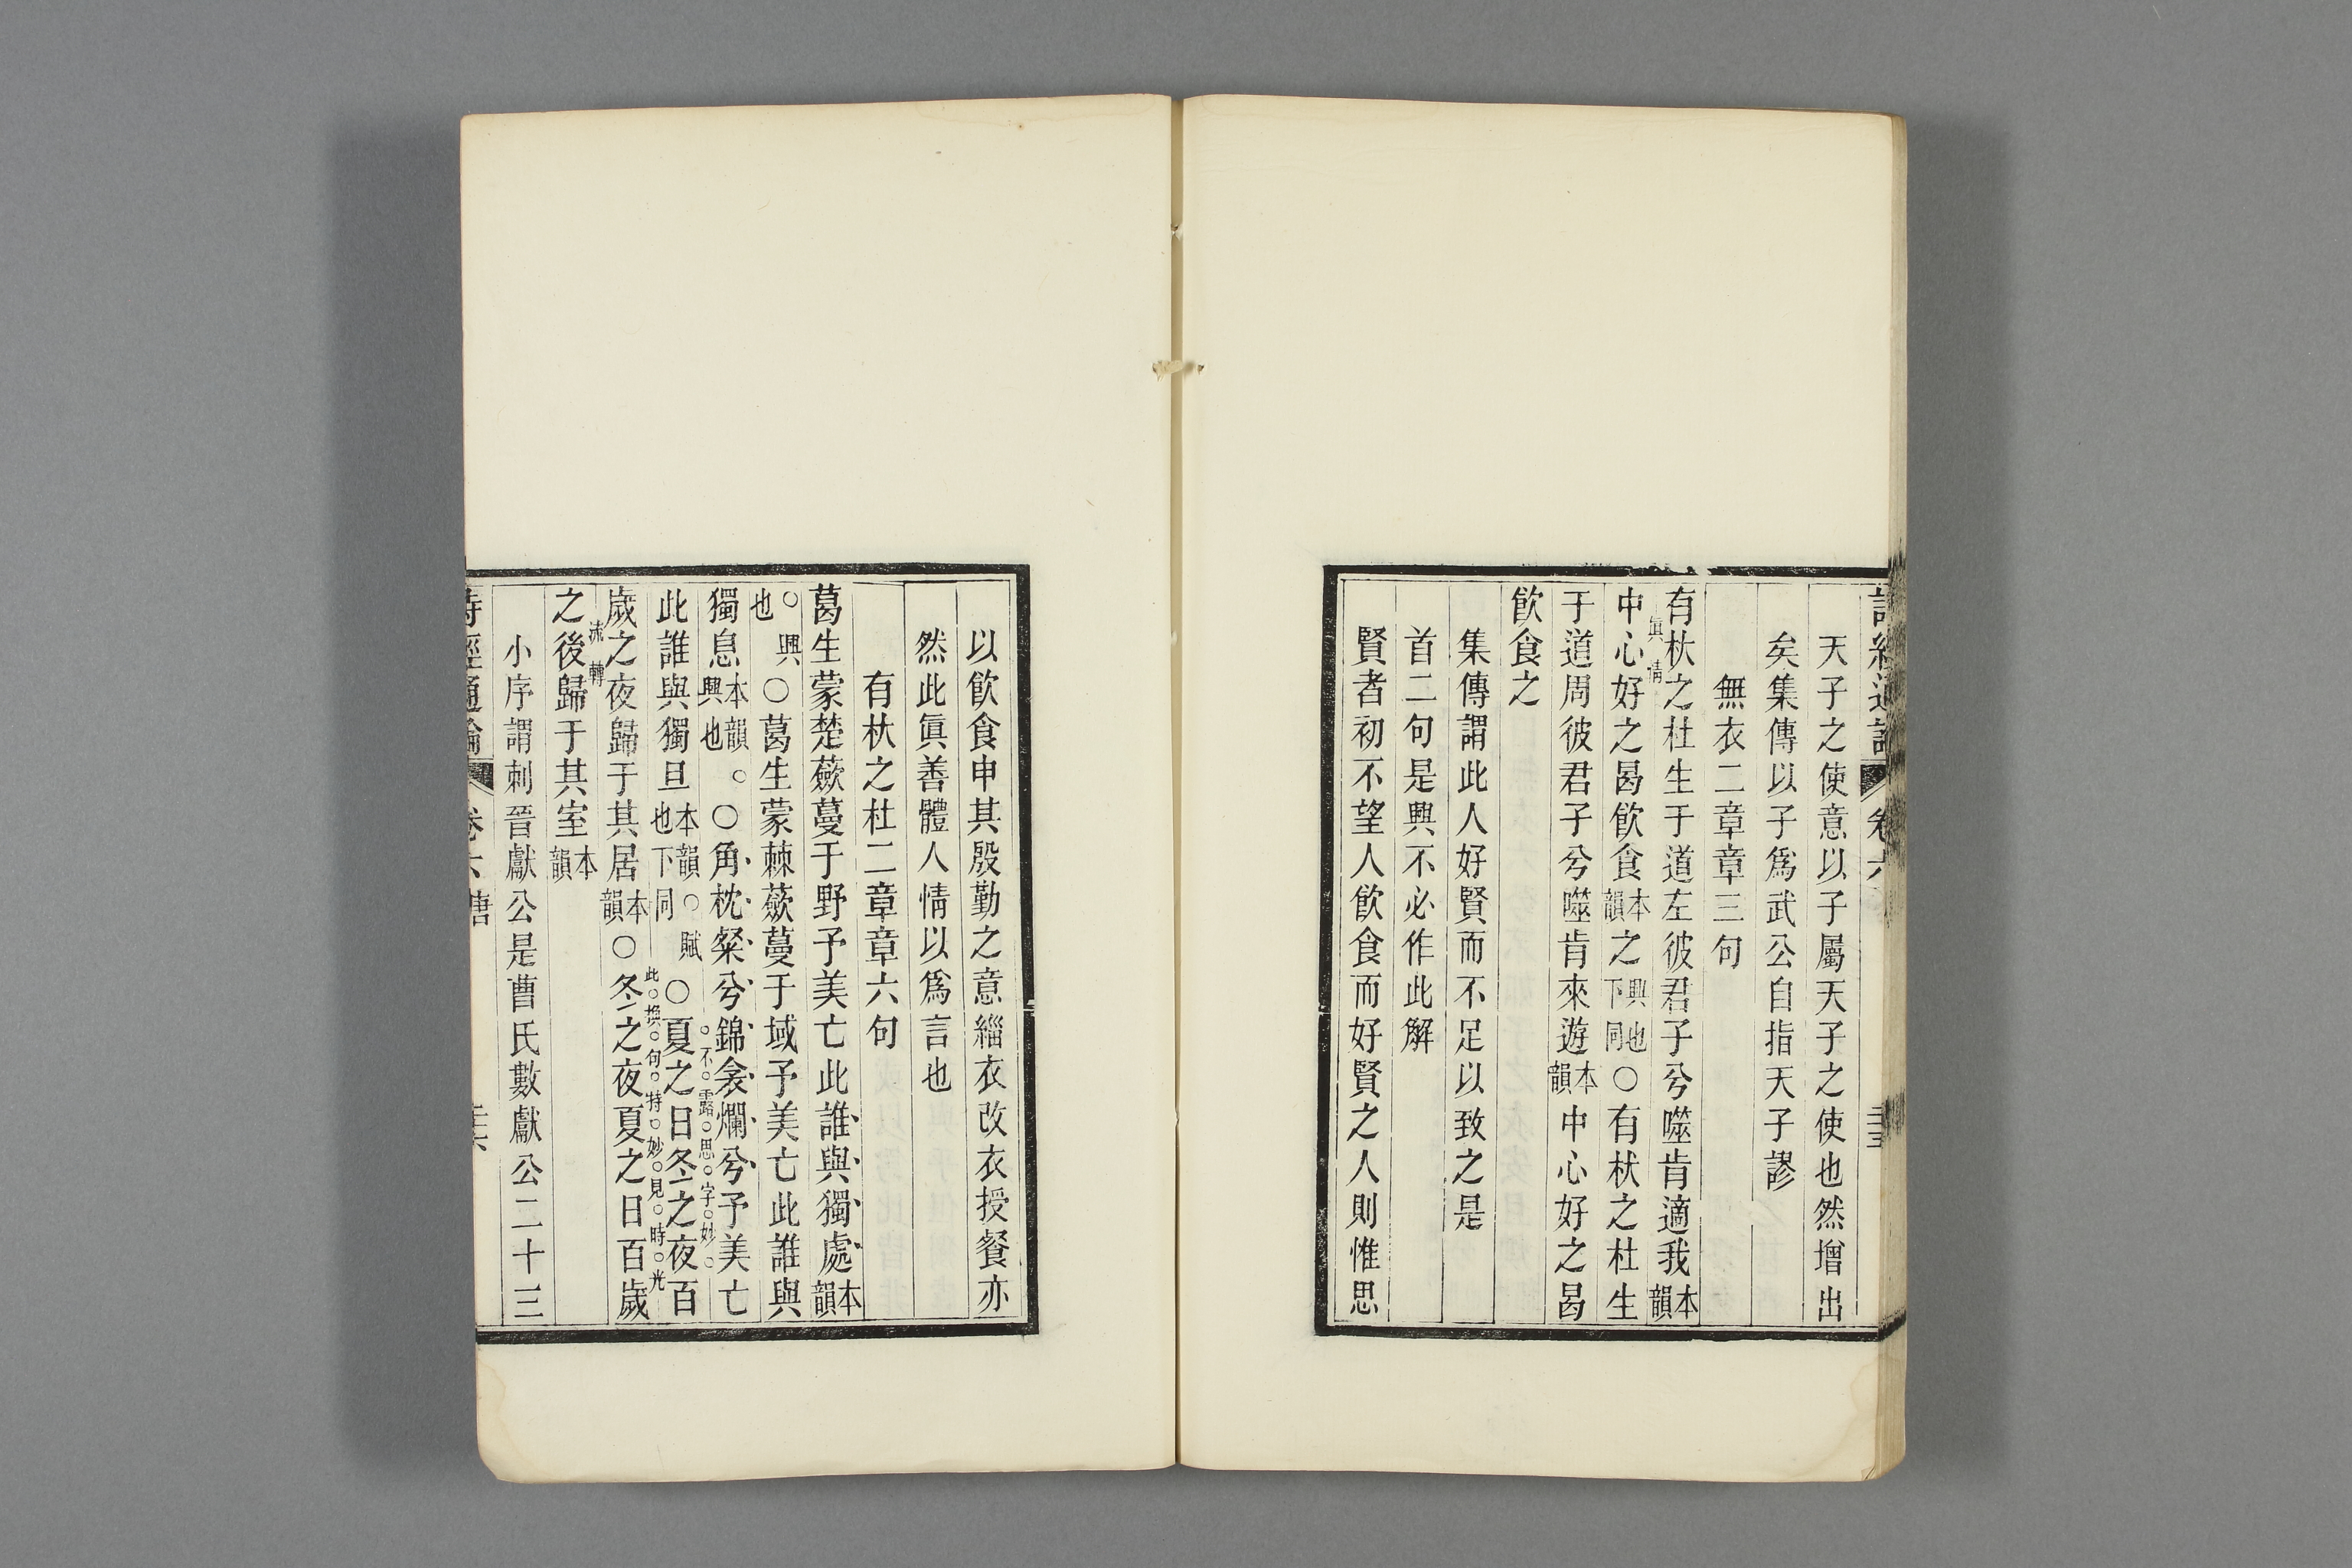 詩經通論 卷六 三五
天子之使意以子屬天子之使也然增出
矣集傳以子爲武公自指天子謬
無衣二章章三句
有杕之杜生于道左彼君子兮噬肯適我本韻
眞情
中心好之曷飲食本韻之興也下同○有杕之杜生
于道周彼君子兮噬肯來遊本韻中心好之曷
飲食之
集傳謂此人好賢而不足以致之是
首二句是興不必作此解
賢者初不望人飲食而好賢之人則惟思
以飲食申其殷勤之意緇衣改衣授餐亦
然此眞善體人情以爲言也
有杕之杜二章章六句
葛生蒙楚蘞蔓于野予美亡此誰與獨處本韻
○興也○葛生蒙棘蘞蔓于域予美亡此誰與
獨息本韻興也○角枕粲兮錦衾爛兮予美亡
不露思字妙
此誰與獨旦本韻○賦也下同○夏之日冬之夜百
此換句特妙見時光
歲之夜歸于其居本韻○冬之夜夏之日百歲
流轉
之後歸于其室本韻
小序謂刺晉獻公是曹氏數獻公二十三
詩經通論 卷六 唐 三六